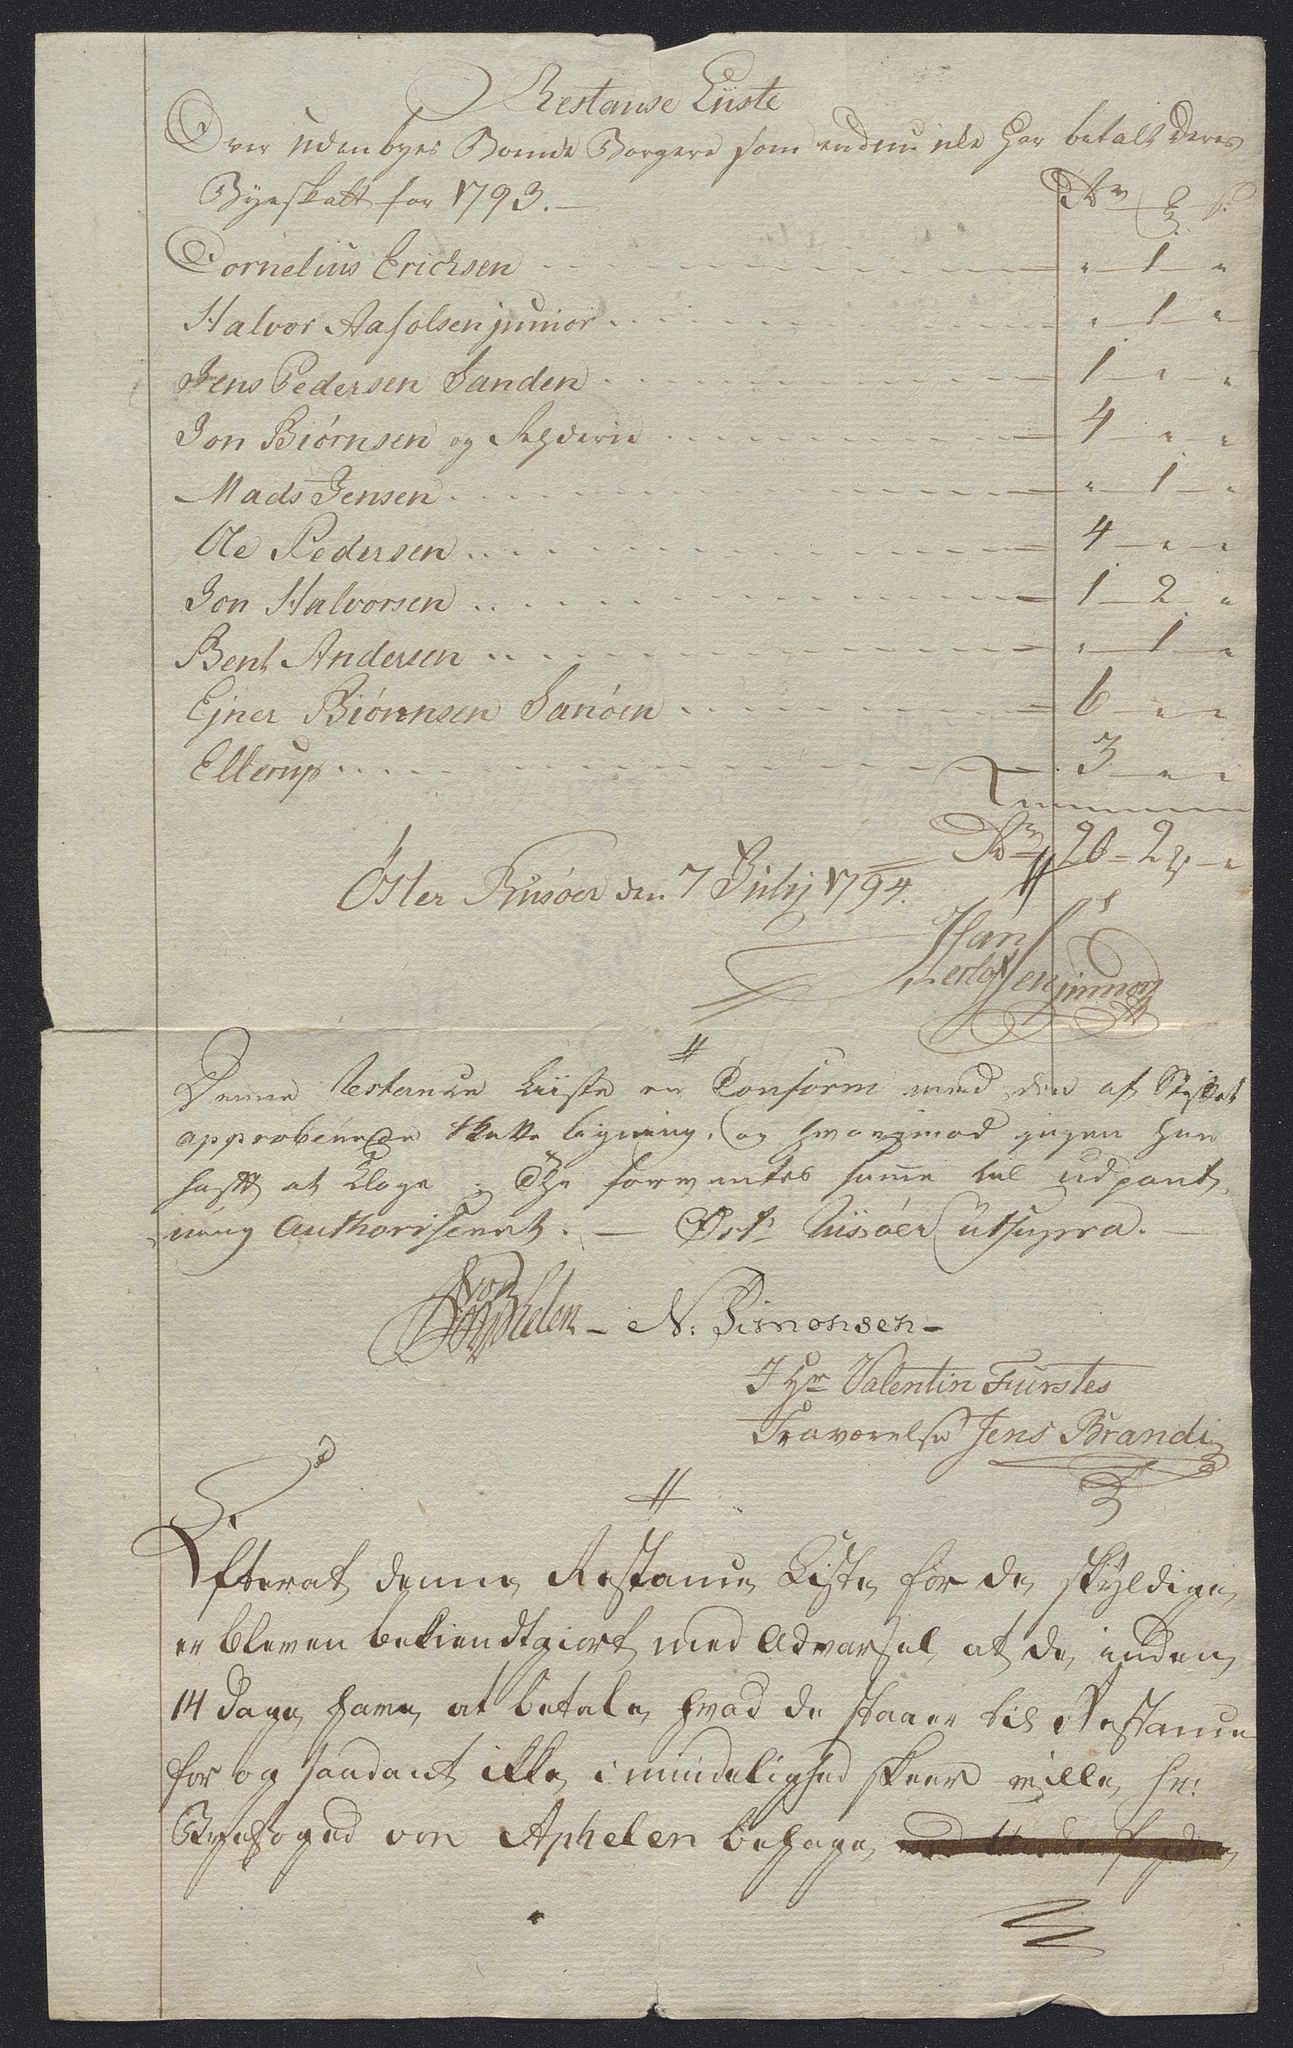 Restanse Liiste
Over udenbyes Boende Borgere som endnu icke har betalt deres
Byeskatt for 1793. —
Rdr ß
Cornelius Ericksen " 1 "
Halvor Aasolsen junior " 1 "
Jens Pedersen Sanden 1 " "
Jon Biørnsen og 4 " "
Mads Jensen " 1 "
Ole Pedersen 4 " "
Jon Halvorsen 1 2 "
Bent Andersen " 1 "
Ejner Biørnsen Sanøen 6 " "
Ellerup 3 " "
Rdr 20 = 2 "
Öster Riisöer den 7 Julij 1794.
Hans
Herlofsen junior
Denne Restance Liiste er Conform med den af Stiftet
approberede Skatte Ligning, og hvorimod ingen har
havt at klage; Thi forventes samme til udpant-
ning Authoriseret. — Øst: Riisöer ut supra. —
von Aphelen – N. Simonsen –
I Hr Valentin Fürstes
Fraværelse Jens Brandt
Efterat denne Restance Liste for de skyldige
er bleven bekiendtgiort med Advarsel at de inden
14 Dage have at betale hvad de staaer til Restance
for og saadant ikke i mindelighed skeer ville Hr:
Byefoged von Aphelen behage